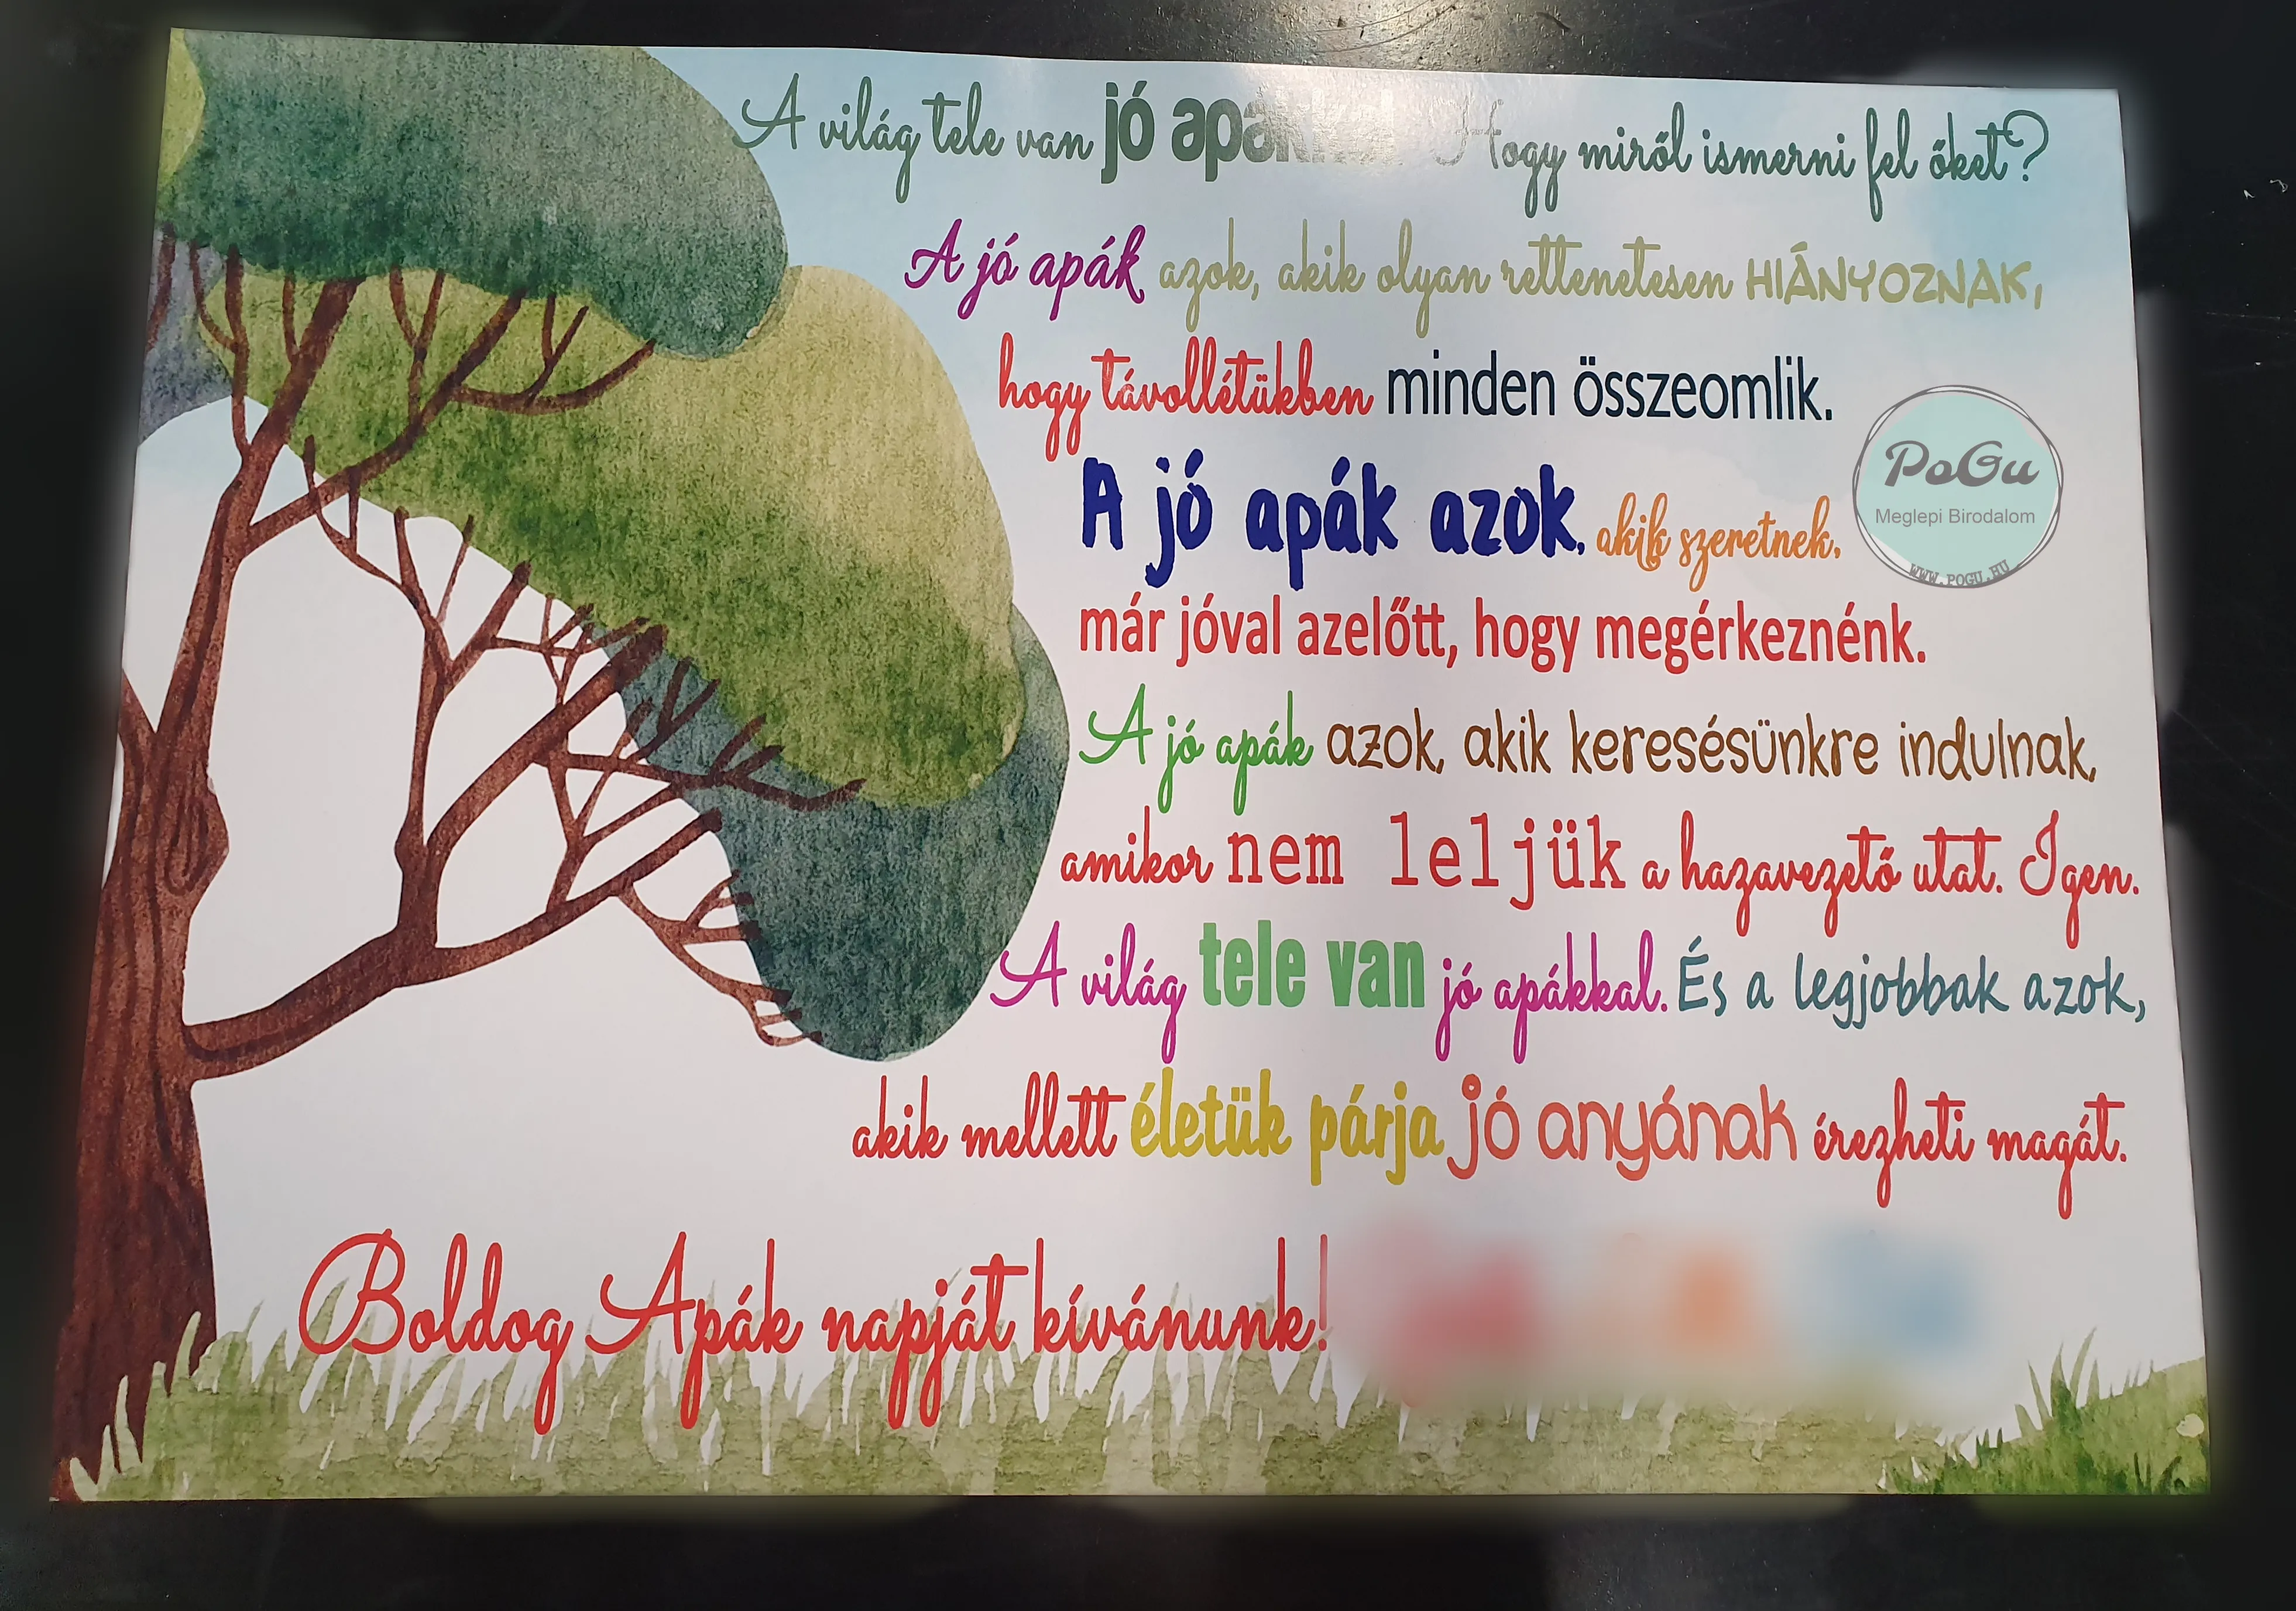 A világ tele van jó apákkal. Hogy miről ismerni fel őket?
A jó apák azok, akik olyan rettenetesen HIÁNYOZNAK,
hogy távollétükben minden összeomlik.
A jó apák azok, akik szeretnek.
már jóval azelőtt, hogy megérkeznénk.
A jó apák azok, akik keresésünkre indulnak,
amikor nem leljük a hazavezető utat. Igen.
A világ tele van jó apákkal. És a legjobbak azok,
akik mellett életük párja jó anyának érezheti magát.
Boldog Apák napját kívánunk!
PoGu
Meglepi Birodalom
WWW.POGU.HU